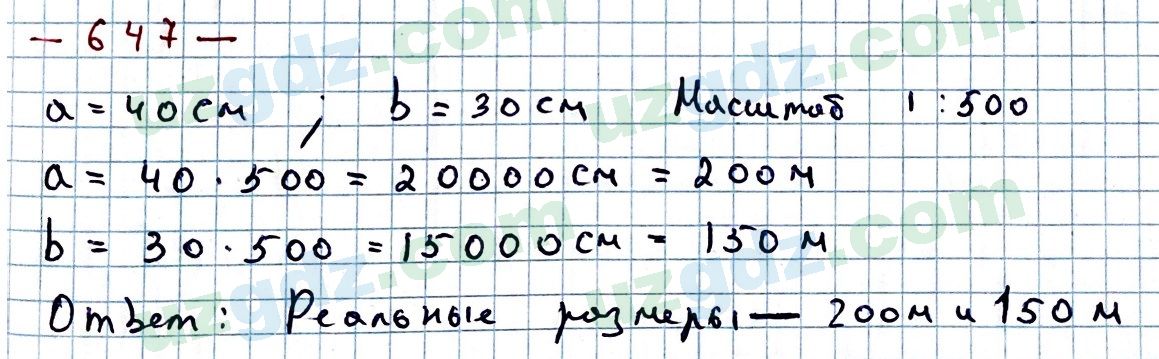 — 647 —
a = 40 см ; b = 30 см Масштаб 1 : 500
a = 40 · 500 = 20000 см = 200 м
b = 30 · 500 = 15000 см = 150 м
Ответ: Реальные размеры — 200 м и 150 м
uzgdz.com
uzgdz.com
uzgdz.com
uzgdz.com